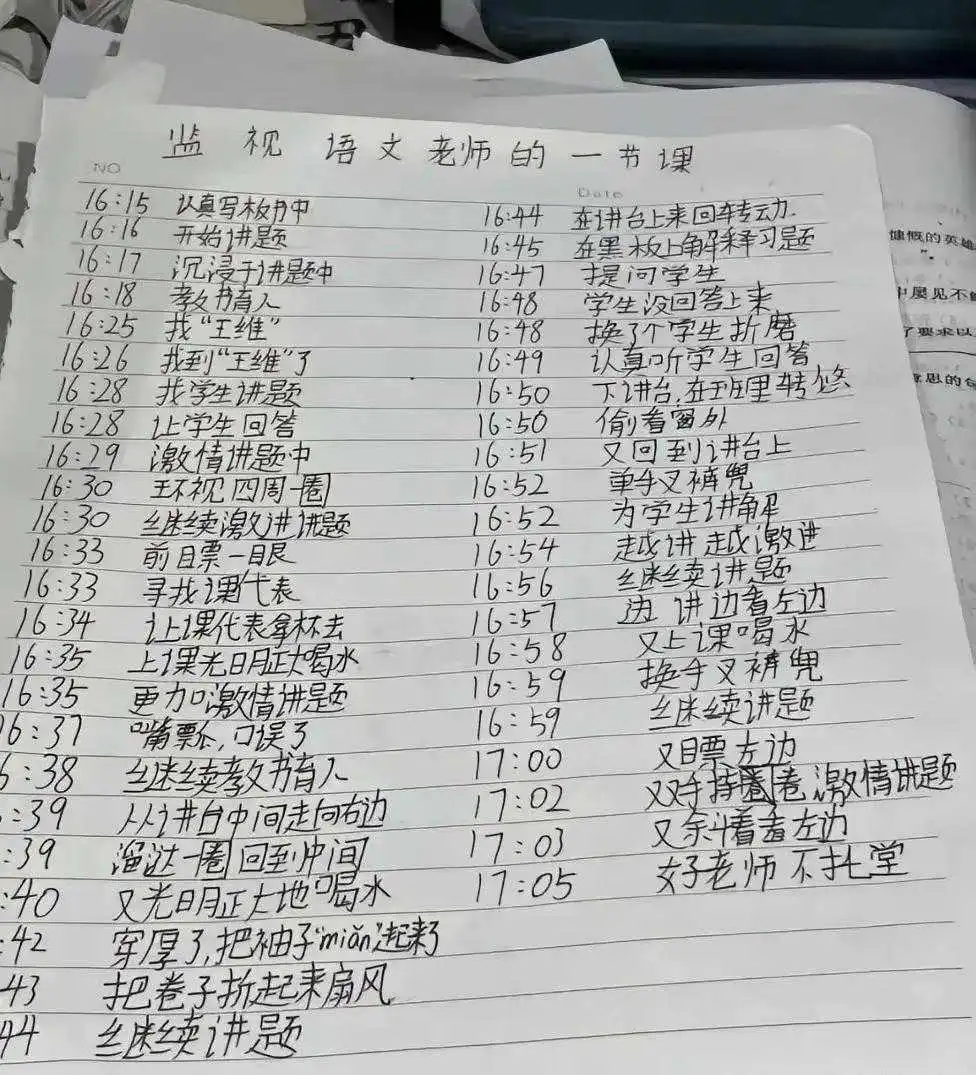 监视语文老师的一节课
NO
Date
16:15 认真写板书中
16:16 开始讲题
16:17 沉浸于讲题中
16:18 教书育人
16:25 找“王维”
16:26 找到“王维”了
16:28 找学生讲题
16:28 让学生回答
16:29 激情讲题中
16:30 环视四周一圈
16:30 继续激进讲题
16:33 前瞟一眼
16:33 寻找课代表
16:34 让课代表拿杯去
16:35 上课光明正大喝水
16:35 更加激情讲题
16:37 嘴瓢,口误了
6:38 继续教书育人
:39 从讲台中间走向右边
:39 溜达一圈回到中间
:40 又光明正大地喝水
:42 穿厚了,把袖子“miǎn”起来了
43 把卷子折起来扇风
44 继续讲题
16:44 在讲台上来回转动.
16:45 在黑板上解释习题
16:47 提问学生
16:48 学生没回答上来
16:48 换了个学生折磨
16:49 认真听学生回答
16:50 下讲台,在班里转悠
16:50 偷看窗外
16:51 又回到讲台上
16:52 单手叉裤兜
16:52 为学生讲解
16:54 越讲越激进
16:56 继续讲题
16:57 边讲边看左边
16:58 又上课喝水
16:59 换手叉裤兜
16:59 继续讲题
17:00 又瞟左边
17:02 双手持卷激情讲题
17:03 又斜着看左边
17:05 好老师不扎堂
慷慨的英雄
中屡见不
了要求以
意思的